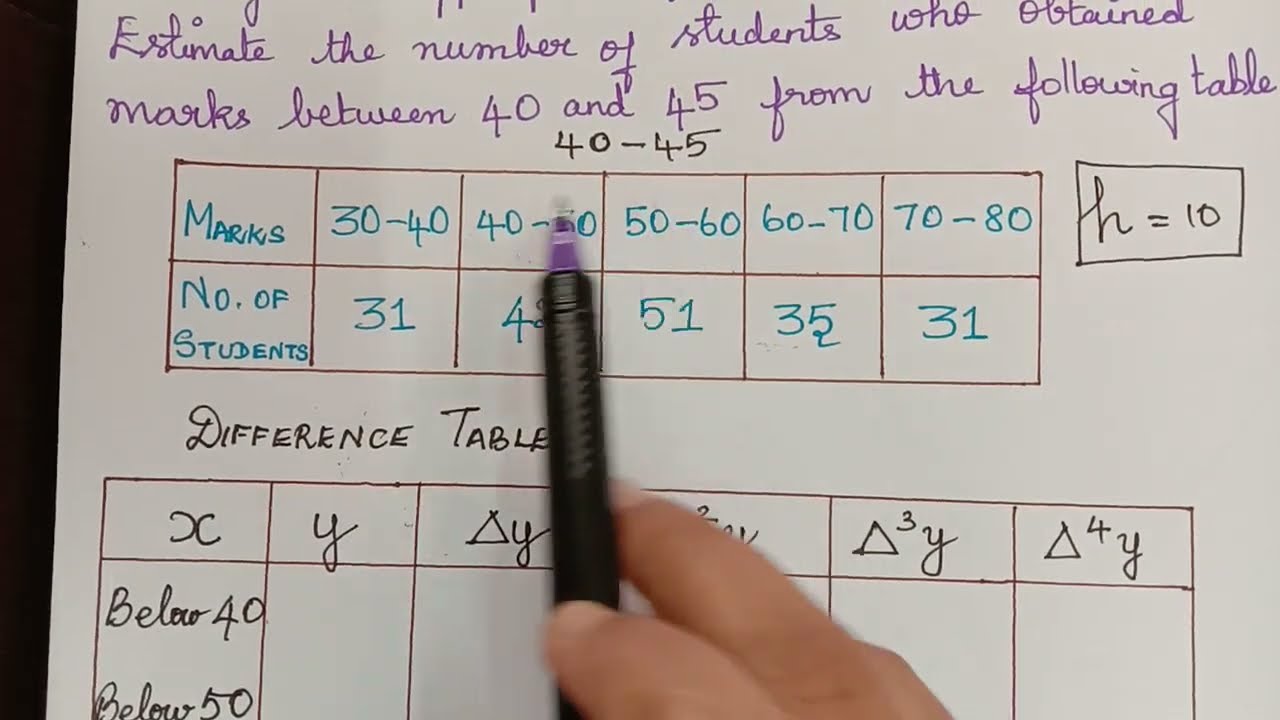 Estimate the number of students who obtained
marks between 40 and 45 from the following table
40-45
MARKS 30-40 40-50 50-60 60-70 70-80
h = 10
NO. OF STUDENTS 31 51 35 31
DIFFERENCE TABLE
x y Δy Δ³y Δ⁴y
Below 40
Below 50